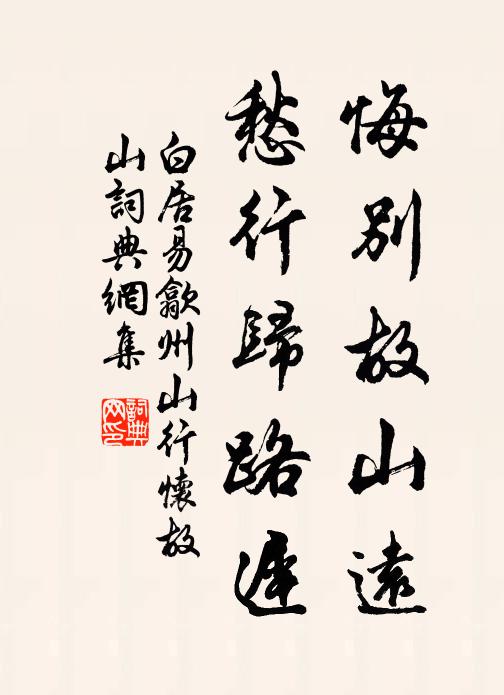 悔別故山遠
愁行歸路遲
白居易歙州山行懷故
山詞典網集
詞典
網印